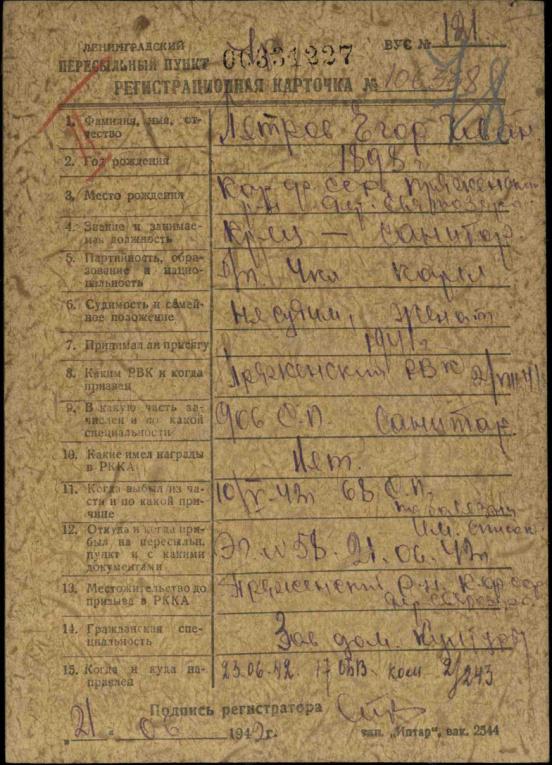 ЛЕНИНГРАДСКИЙ
ПЕРЕСЫЛЬНЫЙ ПУНКТ
00331227
ВУС № 121
РЕГИСТРАЦИОННАЯ КАРТОЧКА №
78
1. Фамилия, имя, от-
чество
Петров Егор Иван
2. Год рождения
1898 г
3. Место рождения
Кар. ф сср. Пряженский
р-н дер. Святозеро
4. Звание и занимае-
мая должность
Кр-ец — санитар
5. Партийность, обра-
зование и нацио-
нальность
Б/п. 4кл карел
6. Судимость и семей-
ное положение
не судим, женат
7. Принимал ли присягу
1941 г
8. Каким РВК и когда
призван
Пряженский РВК 2/VIII-41
9. В какую часть за-
числен и по какой
специальности
906 С.П. Санитар.
10. Какие имел награды
в РККА
Нет.
11. Когда выбыл из ча-
сти и по какой при-
чине
10/V-42г 68 С.П.
по болезни
12. Откуда и когда при-
был на пересыльн.
пункт и с какими
документами
Им. список
ЭП № 58. 21.06.42г
13. Местожительство до
призыва в РККА
Пряженский р-н Кар сср
14. Гражданская спе-
циальность
Зав дом. культуры
15. Когда и куда на-
правлен
23.06.42. 17 ОВВ. ком 2/243
Подпись регистратора
„21“ 06 1942г.
тип. „Интар“, зак. 2544